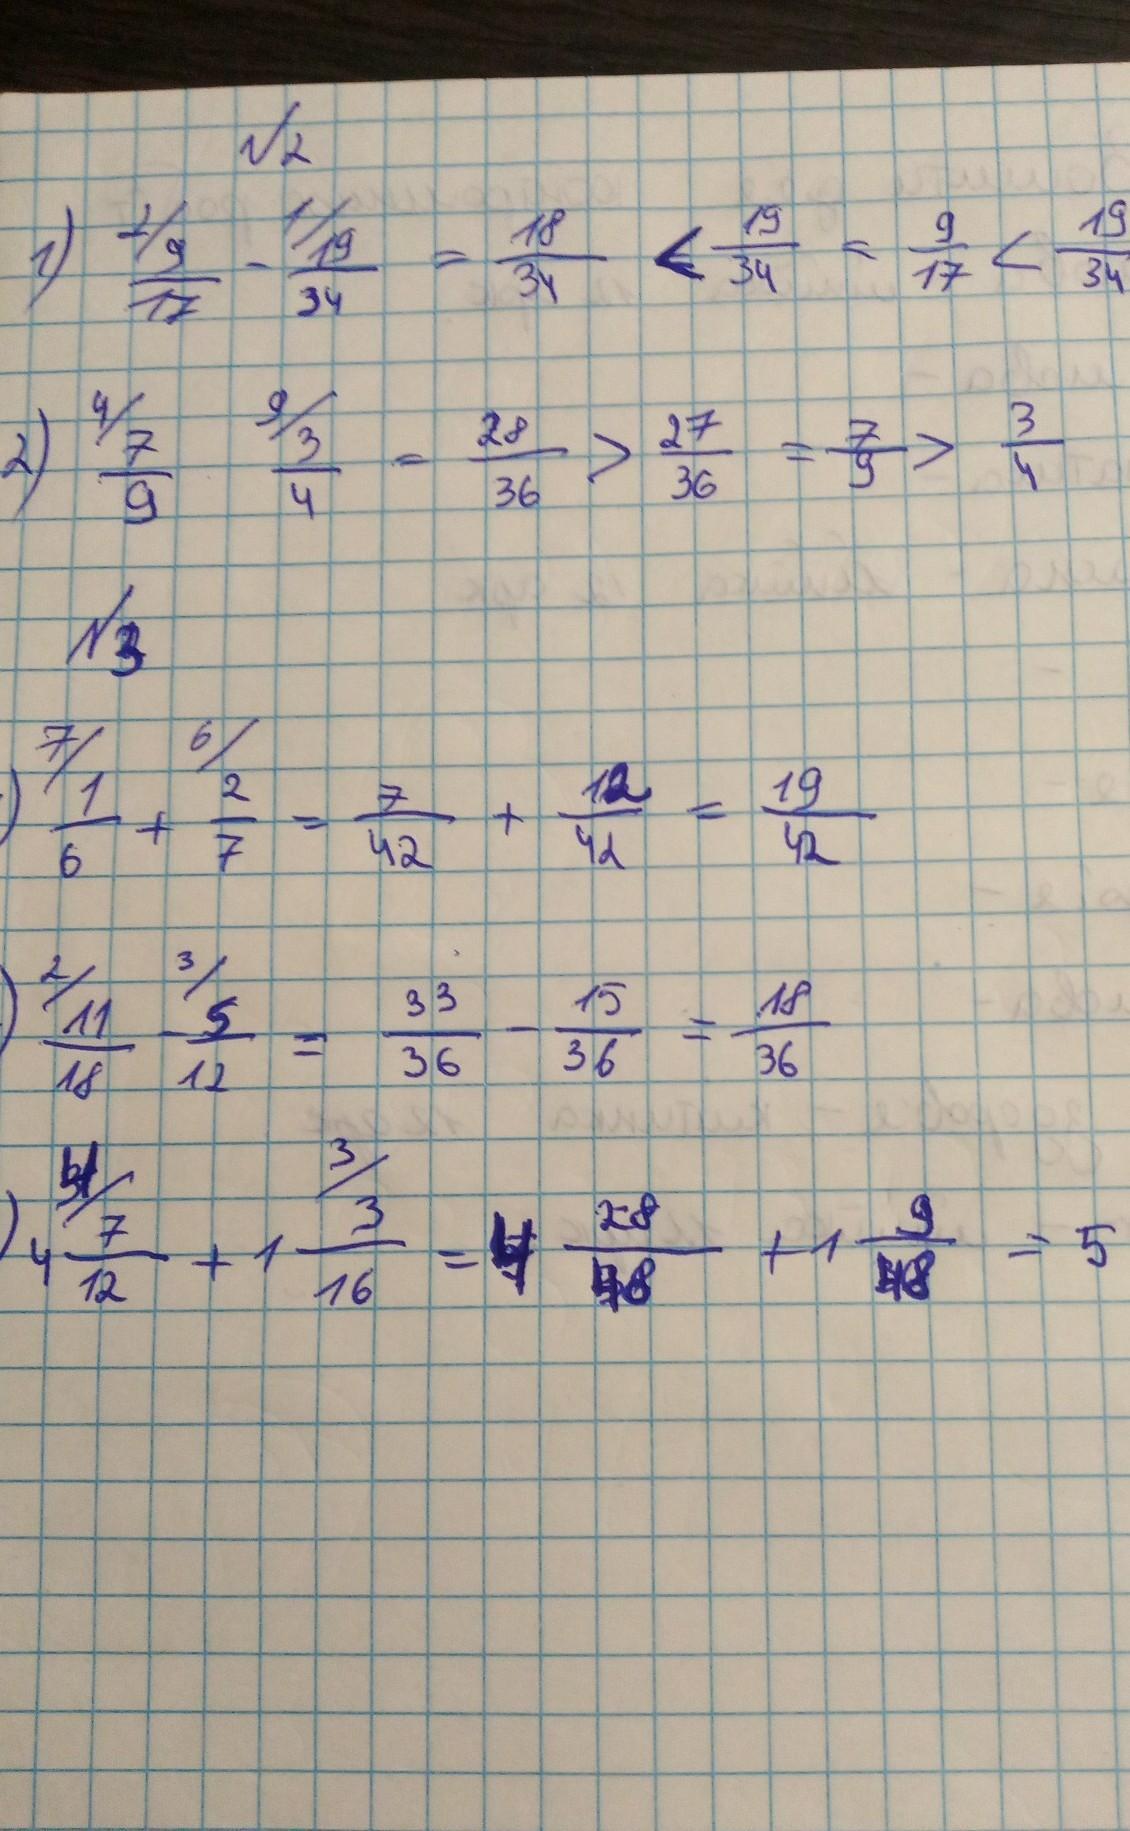 №2
1) 2/ 9/17 - 1/ 19/34 = 18/34 < 19/34 = 9/17 < 19/34
2) 4/ 7/9 9/ 3/4 = 28/36 > 27/36 = 7/9 > 3/4
№3
) 7/ 1/6 + 6/ 2/7 = 7/42 + 12/42 = 19/42
) 2/ 11/18 - 3/ 5/12 = 33/36 - 15/36 = 18/36
) 4/ 4 7/12 + 1 3/ 3/16 = 4 28/48 + 1 9/48 = 5